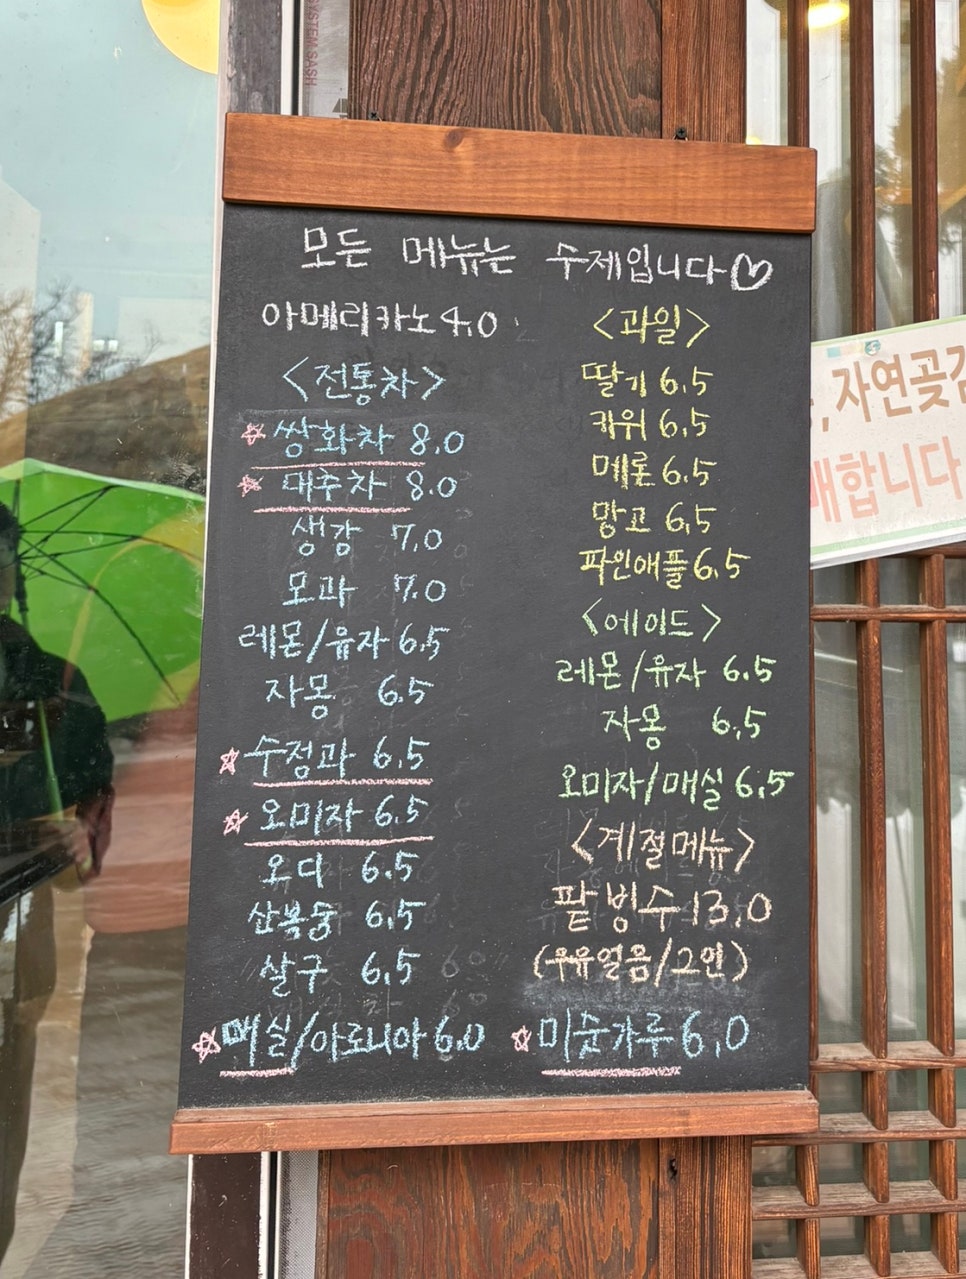 SYSTEM SASH
모든 메뉴는 수제입니다♡
아메리카노 4.0
<전통차>
☆ 쌍화차 8.0
☆ 대추차 8.0
생강 7.0
모과 7.0
레몬/유자 6.5
자몽 6.5
☆ 수정과 6.5
☆ 오미자 6.5
오디 6.5
산복숭 6.5
살구 6.5
☆ 매실/아로니아 6.0
<과일>
딸기 6.5
키위 6.5
메론 6.5
망고 6.5
파인애플 6.5
<에이드>
레몬/유자 6.5
자몽 6.5
오미자/매실 6.5
<계절메뉴>
팥빙수 13.0
(우유얼음/2인)
☆ 미숫가루 6.0
, 자연곶감
매합니다